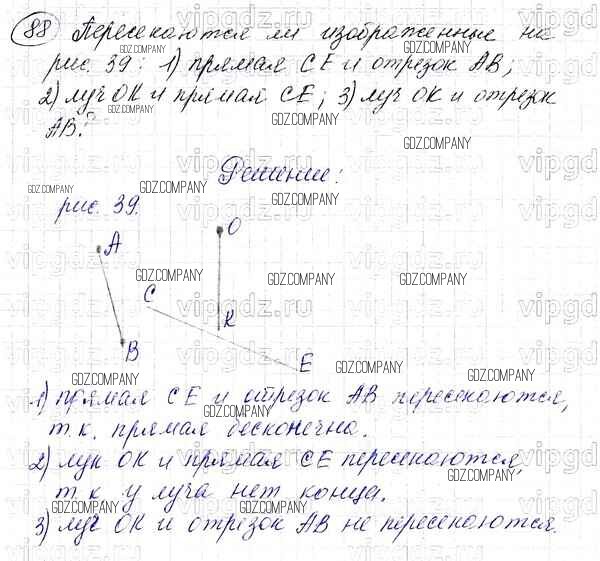 88 Пересекаются ли изображенные на
рис. 39: 1) прямая CE и отрезок AB;
2) луч OK и прямая CE; 3) луч OK и отрезок
AB?
Решение:
рис. 39.
A
O
C
K
B
E
1) прямая CE и отрезок AB пересекаются,
т.к. прямая бесконечна.
2) лук OK и прямая CE пересекаются,
т.к у луча нет конца.
3) луч OK и отрезок AB не пересекаются.
GDZ.COMPANY
vipgdz.ru